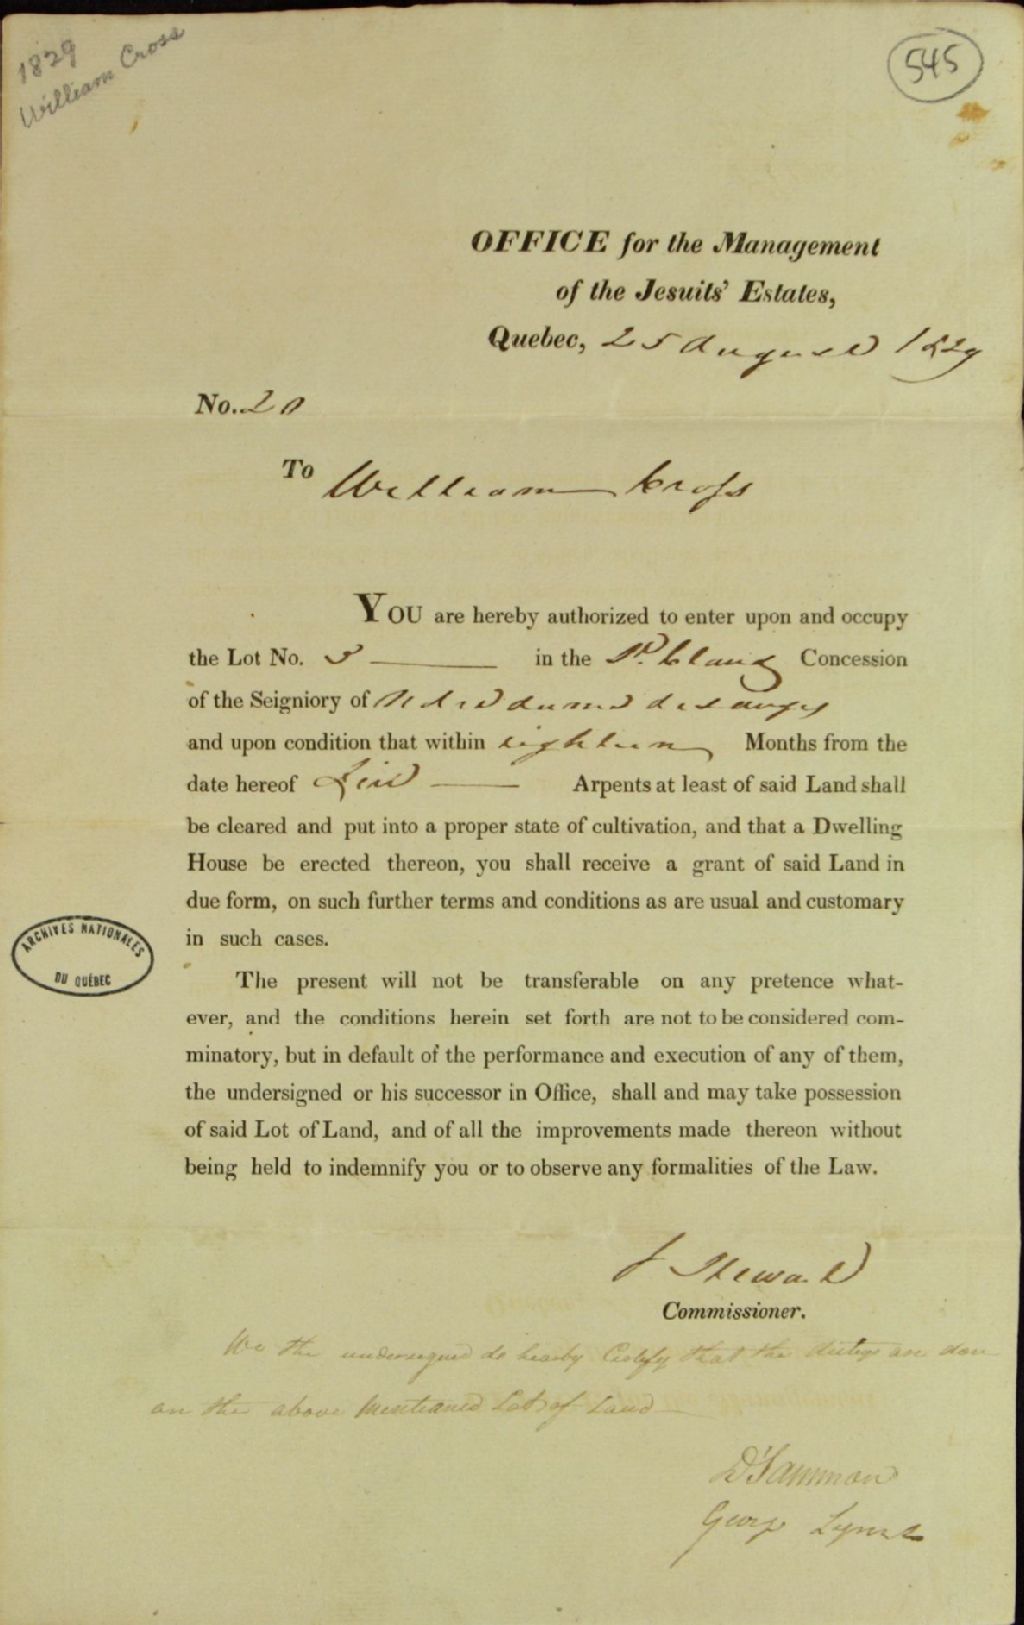 1829
William Cross
545
OFFICE for the Management
of the Jesuits' Estates,
Quebec, 25 August 1829
No. 20
To William Cross
YOU are hereby authorized to enter upon and occupy
the Lot No. in the St. Claude Concession
of the Seigniory of Notre dame des anges
and upon condition that within eighteen Months from the
date hereof Arpents at least of said Land shall
be cleared and put into a proper state of cultivation, and that a Dwelling
House be erected thereon, you shall receive a grant of said Land in
due form, on such further terms and conditions as are usual and customary
in such cases.
The present will not be transferable on any pretence what-
ever, and the conditions herein set forth are not to be considered com-
minatory, but in default of the performance and execution of any of them,
the undersigned or his successor in Office, shall and may take possession
of said Lot of Land, and of all the improvements made thereon without
being held to indemnify you or to observe any formalities of the Law.
ARCHIVES NATIONALES
DU QUÉBEC
J Stewart
Commissioner.
We the undersigned do hereby Certify that the dutys are don
on the above Mentioned Lot of Land
George